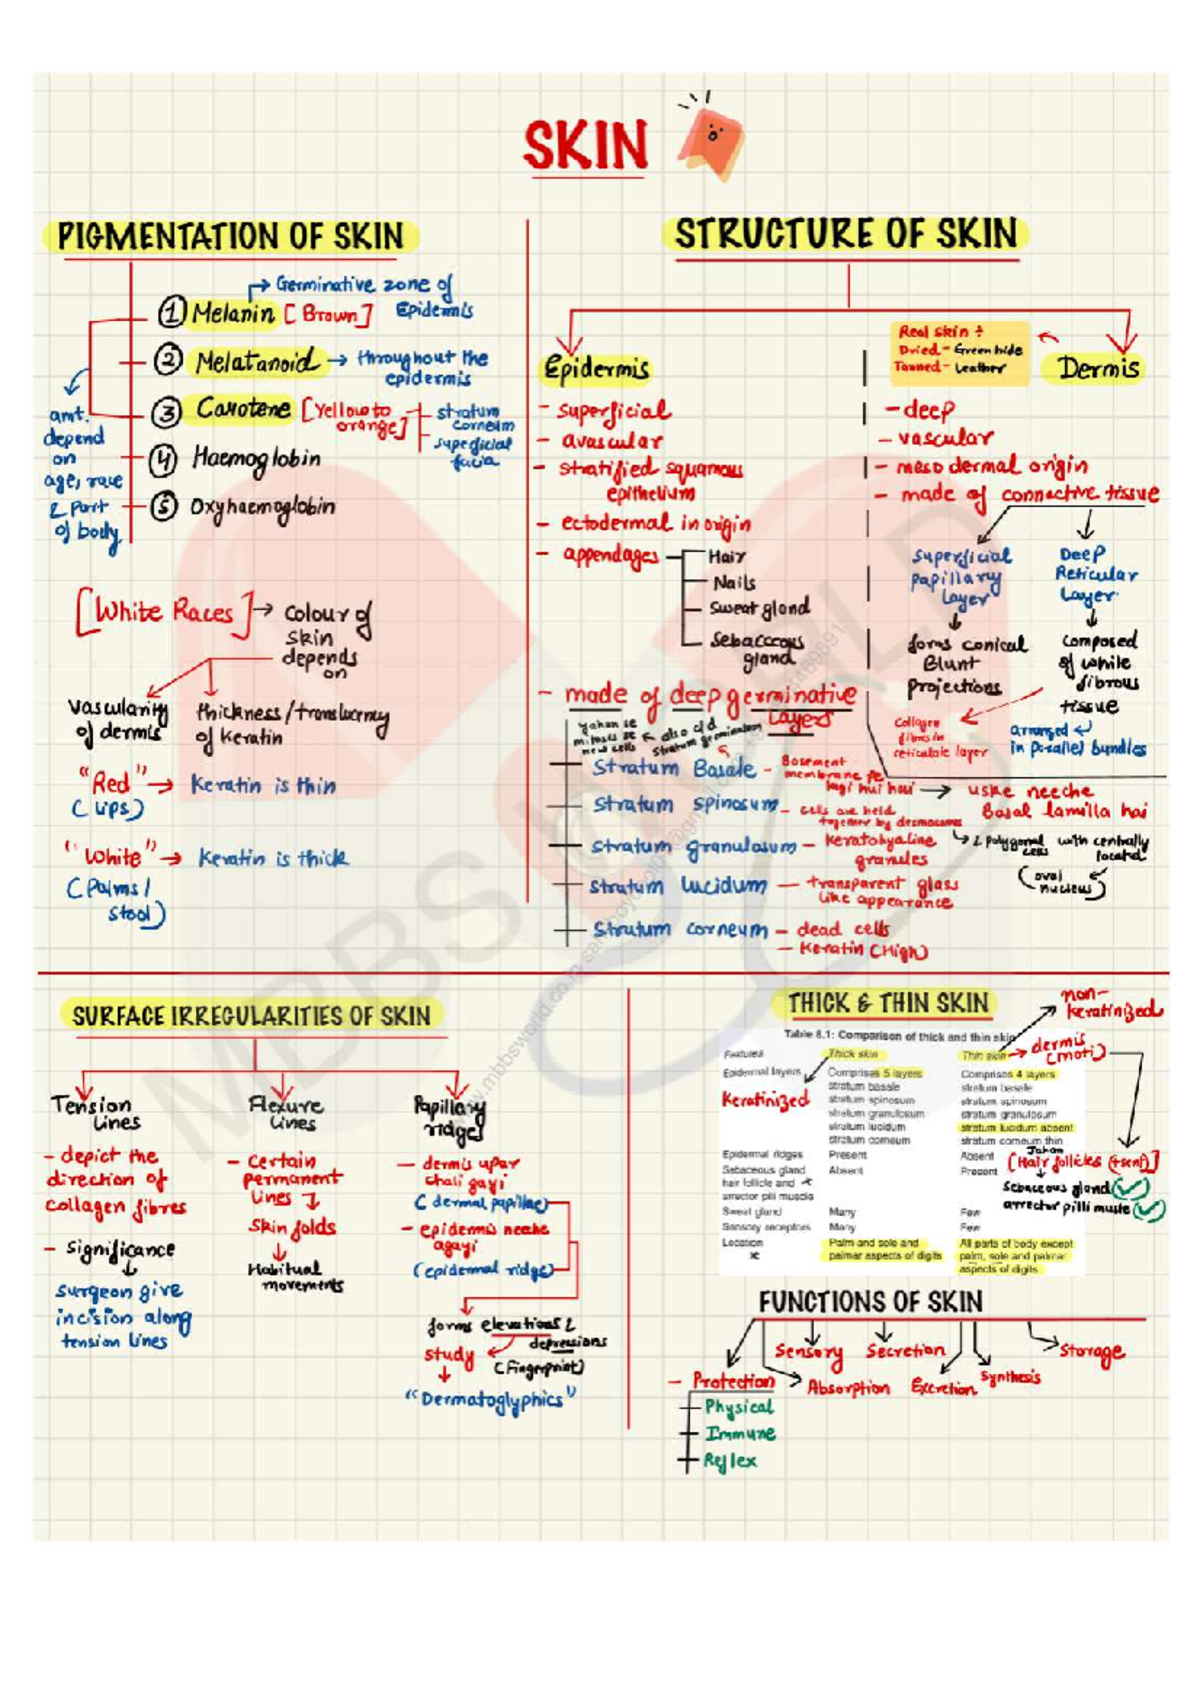 SKIN
PIGMENTATION OF SKIN
→ Germinative zone of
Epidermis
① Melanin [Brown]
② Melatanoid → throughout the
epidermis
③ Carotene [Yellow to
orange]
stratum
corneum
superficial
facia
④ Haemoglobin
⑤ Oxyhaemoglobin
amt.
depend
on
age, race
& Part
of body
[White Races] → Colour of
skin
depends
on
Vascularity
of dermis
thickness/translucency
of Keratin
"Red" → Keratin is thin
(Lips)
"White" → Keratin is thick
(Palms/
Stool)
STRUCTURE OF SKIN
Epidermis
- superficial
- avascular
- stratified squamous
epithelium
- ectodermal in origin
- appendages
Hair
Nails
Sweat gland
Sebaceous
gland
- made of deep germinative
Layers
Yahan se
mitosis se
new cells
← also c/d
Stratum germinatum
Stratum Basale - Basement
membrane pe
lagi hui hai → uske neeche
Basal lamilla hai
Stratum spinosum - cells are held
together by desmosomes
↳ & polygonal
cells
with centrally
located
(oval
nucleus)
Stratum granulosum - Keratohyaline
granules
Stratum lucidum - transparent glass
like appearance
Stratum corneum - dead cells
- Keratin (High)
Real skin ÷
Dried - Green hide
Tanned - Leather
Dermis
- deep
- vascular
- mesodermal origin
- made of connective tissue
Superficial
Papillary
Layer
forms conical
Blunt
projections
Deep
Reticular
Layer
composed
of white
fibrous
tissue
arranged
in parallel bundles
Collagre
fibres in
reticulate layer
SURFACE IRREGULARITIES OF SKIN
Tension
Lines
- depict the
direction of
collagen fibres
- Significance
surgeon give
incision along
tension lines
Flexure
Lines
- Certain
permanent
lines
Skin folds
Habitual
movements
Papillary
ridges
- dermis upar
chali gayi
(dermal papillae)
- epidermis neehe
agayi
(epidermal ridge)
forms elevations &
depressions
(Fingerprint)
study
"Dermatoglyphics"
THICK & THIN SKIN
non-
keratinized
Table 8.1: Comparison of thick and thin skin
dermis
(moti)
Features Thick skin Thin skin
Epidermal layers Comprises 5 layers Comprises 4 layers
Keratinized
stratum basale stratum basale
stratum spinosum stratum spinosum
stratum granulosum stratum granulosum
stratum lucidum stratum lucidum absent
stratum corneum stratum corneum thin
Epidermal ridges Present Absent
Sebaceous gland Absent Present
hair follicle and
arrector pili muscle
Jahan
[Hair follicles (+sent)]
Sebaceous gland
arrector pilli musle
Sweat gland Many Few
Sensory receptors Many Few
Location Palm and sole and All parts of body except
palmar aspects of digits palm, sole and palmar
aspects of digits
FUNCTIONS OF SKIN
- Protection
Physical
Immune
Reflex
Absorption
Sensory
Secretion
Excretion
Synthesis
Storage
MBBS WORLD